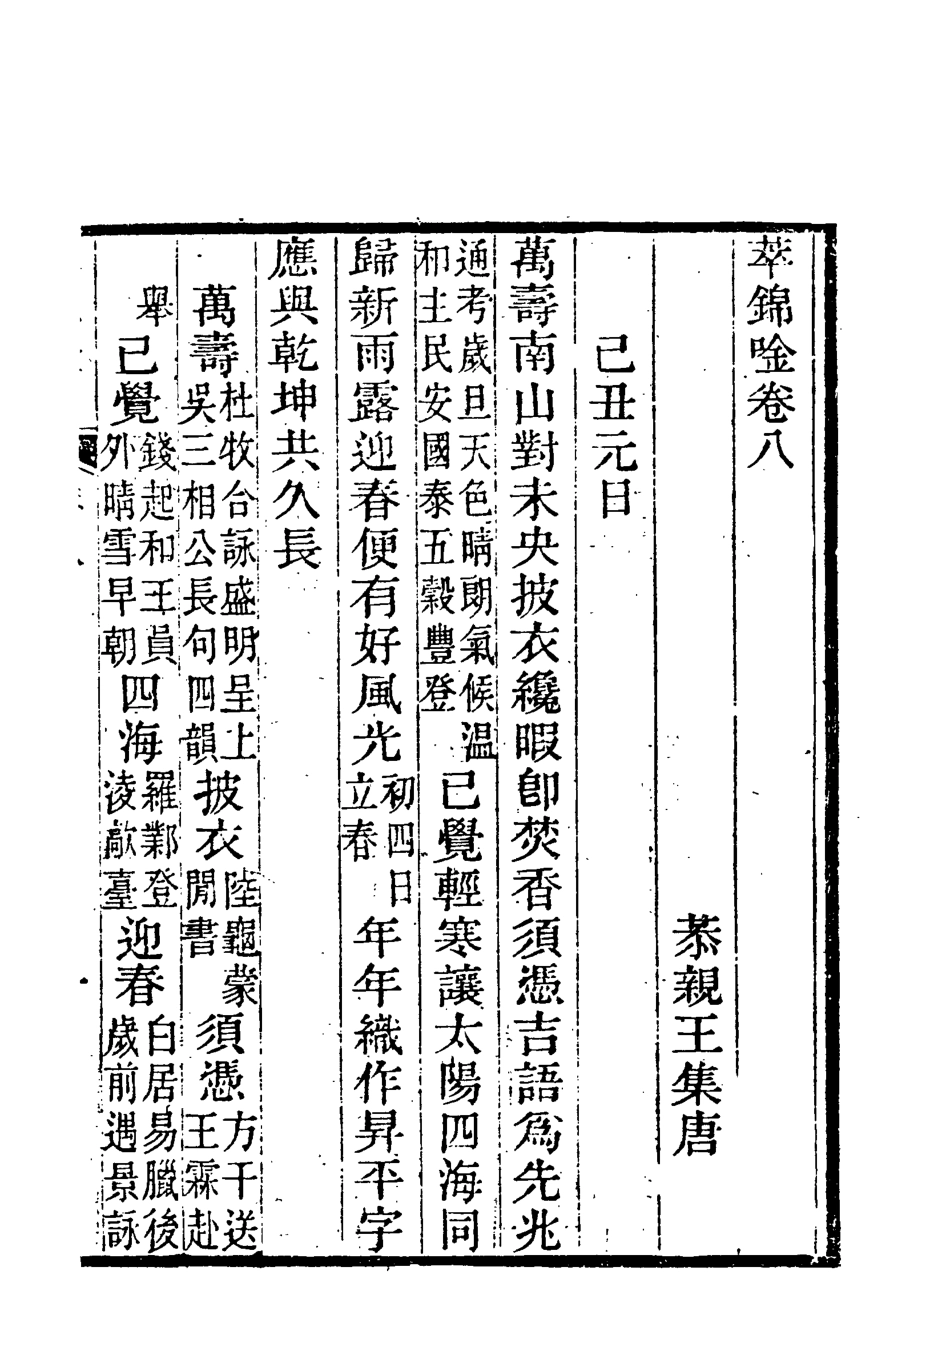 萃錦唫卷八
恭親王集唐
己丑元日
萬壽南山對未央披衣纔暇卽焚香須憑吉語爲先兆
通考歲旦天色晴朗氣候温
和主民安國泰五穀豐登
已覺輕寒讓太陽四海同
歸新雨露迎春便有好風光
初四日
立春
年年織作昇平字
應與乾坤共久長
萬壽
杜牧台詠盛明呈上
吳三相公長句四韻
披衣
陸龜蒙
閒書
須憑
方干送
王霖赴
舉
已覺
錢起和王員
外晴雪早朝
四海
羅鄴登
淩歊臺
迎春
白居易臘後
歲前遇景詠